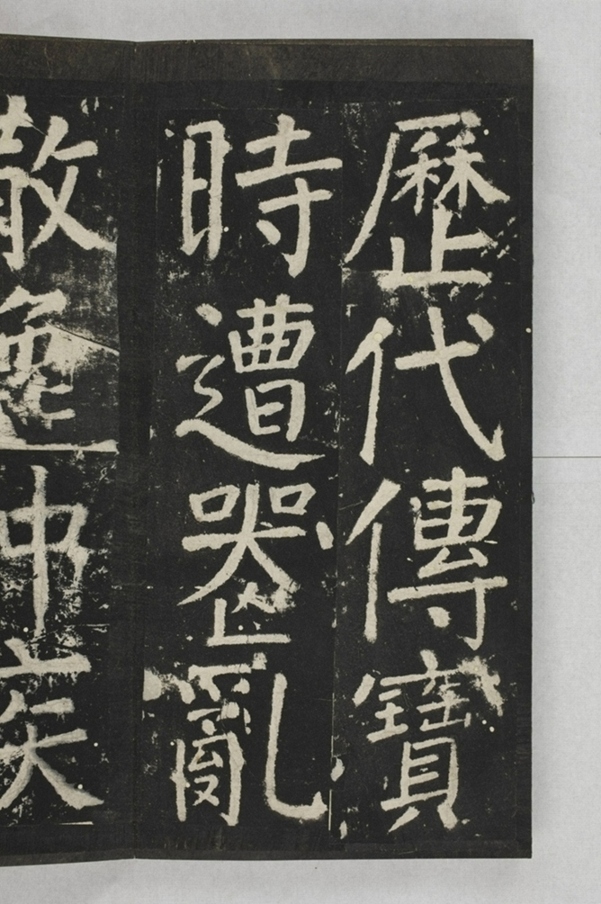 歷代傳寶
時遭喪亂
散逸